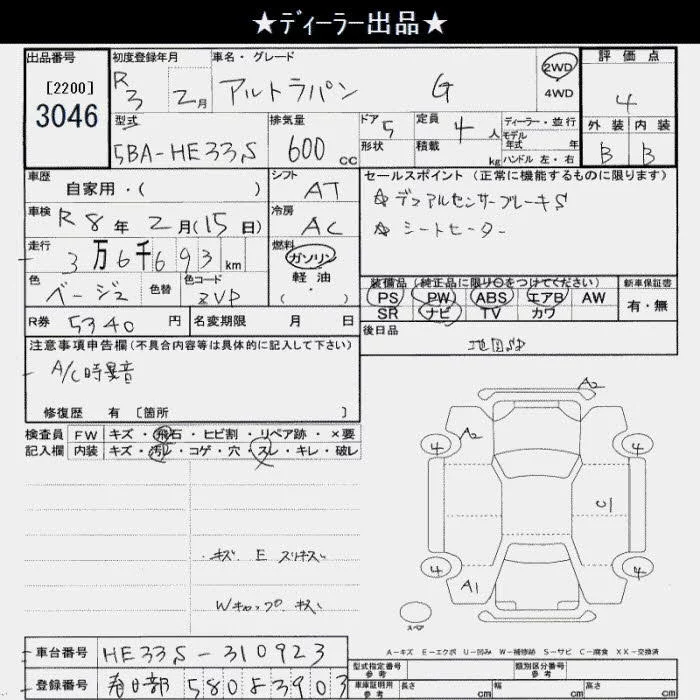 ★ディーラー出品★
出品番号
[2200]
3046
初度登録年月
R3 2月
車名・グレード
アルトラパン G
2WD
4WD
評価点
4
外装 内装
B B
型式
5BA-HE33S
排気量
600 cc
ドア 5
形状
定員 4 人
積載 kg
ディーラー・並行
モデル年式 年
ハンドル 左・右
車歴
自家用・( )
シフト
AT
車検 R8年2月(15日)
冷房
AC
走行 3万6千693 km
燃料
ガソリン
軽油
・( )
色 ベージュ 色替 色コード ZVP
R券 5340円 名変期限 月 日
セールスポイント(正常に機能するものに限ります)
☆デュアルセンサーブレーキS
☆シートヒーター
装備品(純正品に限り○をつけてください)
PS PW ABS エアB AW
SR ナビ TV カワ
新車保証書
有・無
後日品
地図SD
注意事項申告欄(不具合内容等は具体的に記入して下さい)
A/C時異音
修復歴 有〔箇所 〕
検査員 FW キズ・飛石・ヒビ割・リペア跡・×要
記入欄 内装 キズ・汚レ・コゲ・穴・スレ・キレ・破レ
キズ E スリキズ
Wキャップ キズ
A2
A2
4 4
C
4 4
A1
スペア
A-キズ E-エクボ U-凹み W-補修跡 S-サビ C-腐食 XX-交換済
車台番号 HE33S-310923
登録番号 春日部 580 ら 3903
型式指定番号 参考 類別区分番号 参考
車庫証明用 参考 長さ cm 幅 cm 高さ cm